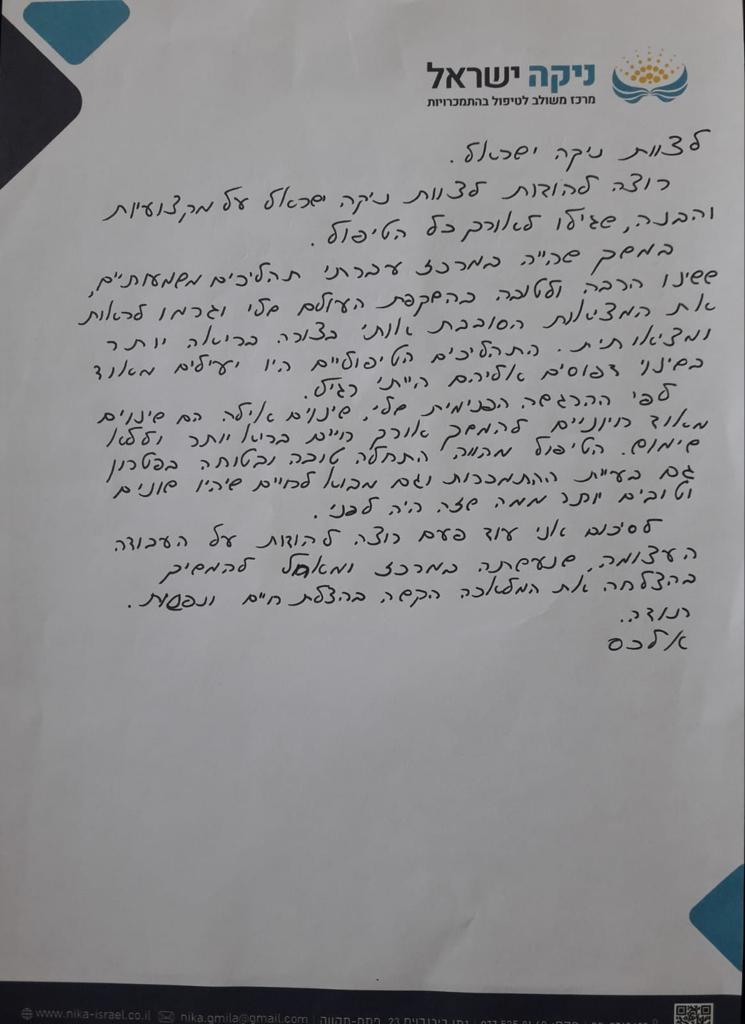 ניקה ישראל
מרכז משולב לטיפול בהתמכרויות
לצוות ניקה ישראל.
רוצה להודות לצוות ניקה ישראל על מקצועיות
והבנה, שגילו לאורך כל הטיפול.
במשך שהייה במרכז עברתי תהליכים משמעותיים,
ששינו הרבה ולטובה בהשקפת העולם שלי וגרמו לראות
את המציאות הסובבת אותי בצורה בריאה יותר
ומציאותית. התהליכים הטיפוליים היו יעילים מאוד
בשינוי דפוסים אליהם הייתי רגיל.
לפי ההרגשה הפנימית שלי, שינוים אילה הם שינוים
מאוד חיוניים להמשך אורח חיים בריא יותר וללא
שימוש. הטיפול מהווה התחלה טובה ובטוחה בפטרון
גם בעיית ההתמכרות וגם מבוא לחיים שיהיו שונים
וטובים יותר ממה שזה היה לפני.
לסיכום אני עוד פעם רוצה להודות על העבודה
העצומה, שנעשתה במרכז ומאחל להמשיך
בהצלחה את המלאכה הקשה בהצלת חיים ונפשות.
תודה.
אלכס
www.nika-israel.co.il nika.gmila@gmail.com